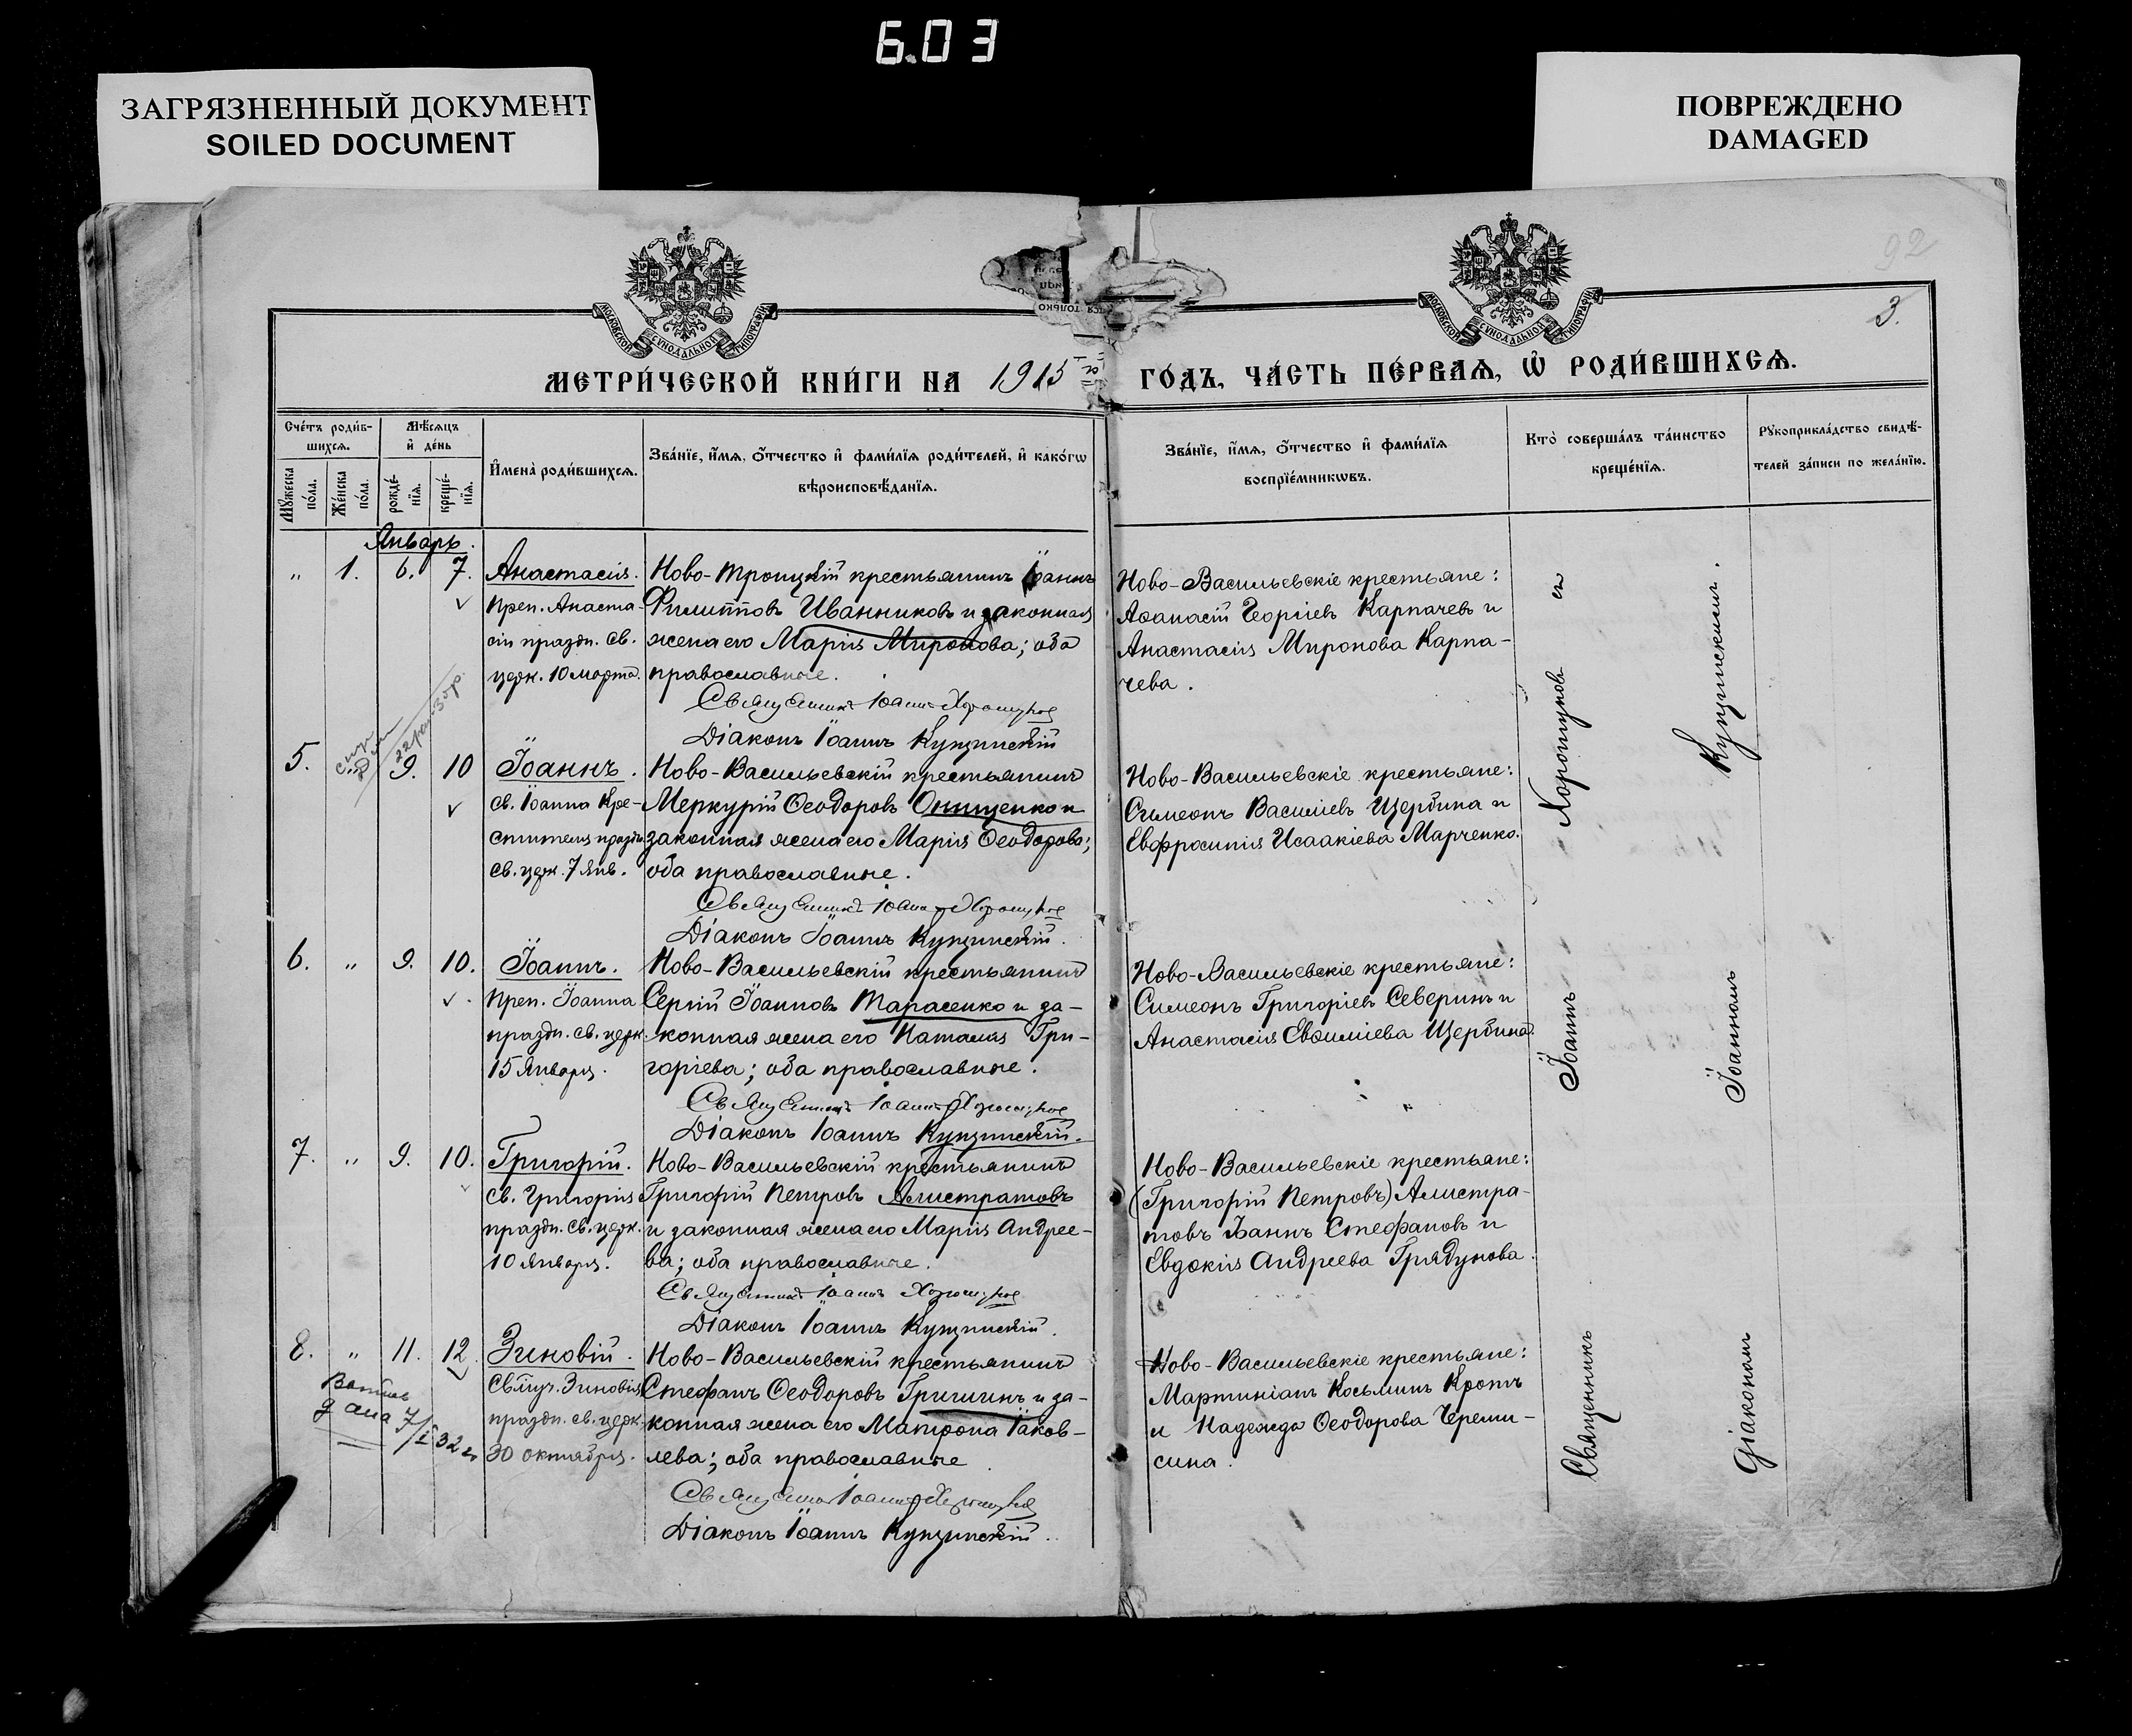 6.03
ЗАГРЯЗНЕННЫЙ ДОКУМЕНТ
SOILED DOCUMENT
ПОВРЕЖДЕНО
DAMAGED
92
3.
МОСКОВСКОЙ СѴНОДАЛЬНОЙ ТИПОГРАФІИ
МОСКОВСКОЙ СѴНОДАЛЬНОЙ ТИПОГРАФІИ
МЕТРИ́ЧЕСКОЙ КНИ́ГИ НА 1915 ГО́ДЪ, ЧА́СТЬ ПЕ́РВАѦ, Ѡ҆ РОДИ́ВШИХСѦ.
Сче́тъ роди́в-
шихсѧ.
Мꙋ́жеска по́ла.
Же́нска по́ла.
Мѣ́сѧцъ
и҆ де́нь
рожде́-
нїѧ.
креще́-
нїѧ.
И҆мена̀ роди́вшихсѧ.
Зва́нїе, и҆́мѧ, ѻ҆́тчество и҆ фами́лїѧ роди́телей, и҆ како́гѡ
вѣроисповѣ́данїѧ.
Зва́нїе, и҆́мѧ, ѻ҆́тчество и҆ фами́лїѧ
воспрїе́мникѡвъ.
Кто̀ соверша́лъ та́инство
креще́нїѧ.
Рꙋкоприкла́дство свидѣ́-
телей за́писи по жела́нїю.
Январь.
" 1. 6. 7. Анастасія.
Преп. Анаста-
сіи праздн. св.
церк. 10 марта.
Ново-Троицкій крестьянинъ Іоаннъ
Филипповъ Иванниковъ и законная
жена его Марія Миронова; оба
православные.
Священникъ Іоаннъ Хорошуновъ
Діаконъ Іоаннъ Кунцинскій
Ново-Васильевскіе крестьяне:
Аѳанасій Георгіевъ Карпачевъ и
Анастасія Миронова Карпа-
чева.
5. 9. 10 Іоаннъ.
св. Іоанна Кре-
стителя праздн.
св. церк. 7 Янв.
Ново-Васильевскій крестьянинъ
Меркурій Ѳеодоровъ Онищенко и
законная жена его Марія Ѳеодорова;
оба православные.
Священникъ Іоаннъ Хорошуновъ
Діаконъ Іоаннъ Кунцинскій.
Ново-Васильевскіе крестьяне:
Симеонъ Василіевъ Щербина и
Евфросинія Исаакіева Марченко.
6. " 9. 10. Іоаннъ.
Преп. Іоанна
праздн. св. церк.
15 Января.
Ново-Васильевскій крестьянинъ
Сергій Іоанновъ Тарасенко и за-
конная жена его Наталія Гри-
горіева; оба православные.
Священникъ Іоаннъ Хорошуновъ
Діаконъ Іоаннъ Кунцинскій.
Ново-Васильевскіе крестьяне:
Симеонъ Григоріевъ Северинъ и
Анастасія Евѳиміева Щербина.
7. " 9. 10. Григорій.
св. Григорія
праздн. св. церк.
10 Января.
Ново-Васильевскій крестьянинъ
Григорій Петровъ Алистратовъ
и законная жена его Марія Андрее-
ва; оба православные.
Священникъ Іоаннъ Хорошуновъ
Діаконъ Іоаннъ Кунцинскій.
Ново-Васильевскіе крестьяне:
(Григорій Петровъ) Алистра-
товъ Іоаннъ Стефановъ и
Евдокія Андреева Грядунова.
8. " 11. 12. Зиновій.
Свмуч. Зиновія
праздн. св. церк.
30 октября.
Ново-Васильевскій крестьянинъ
Стефанъ Ѳеодоровъ Гришинъ и за-
конная жена его Матрона Іаков-
лева; оба православные
Священникъ Іоаннъ Хорошуновъ
Діаконъ Іоаннъ Кунцинскій.
Ново-Васильевскіе крестьяне:
Мартиніанъ Косьминъ Кротъ
и Надежда Ѳеодорова Череми-
сина.
Священникъ Іоаннъ Хорошуновъ съ
діакономъ Іоанномъ Кунцинскимъ.